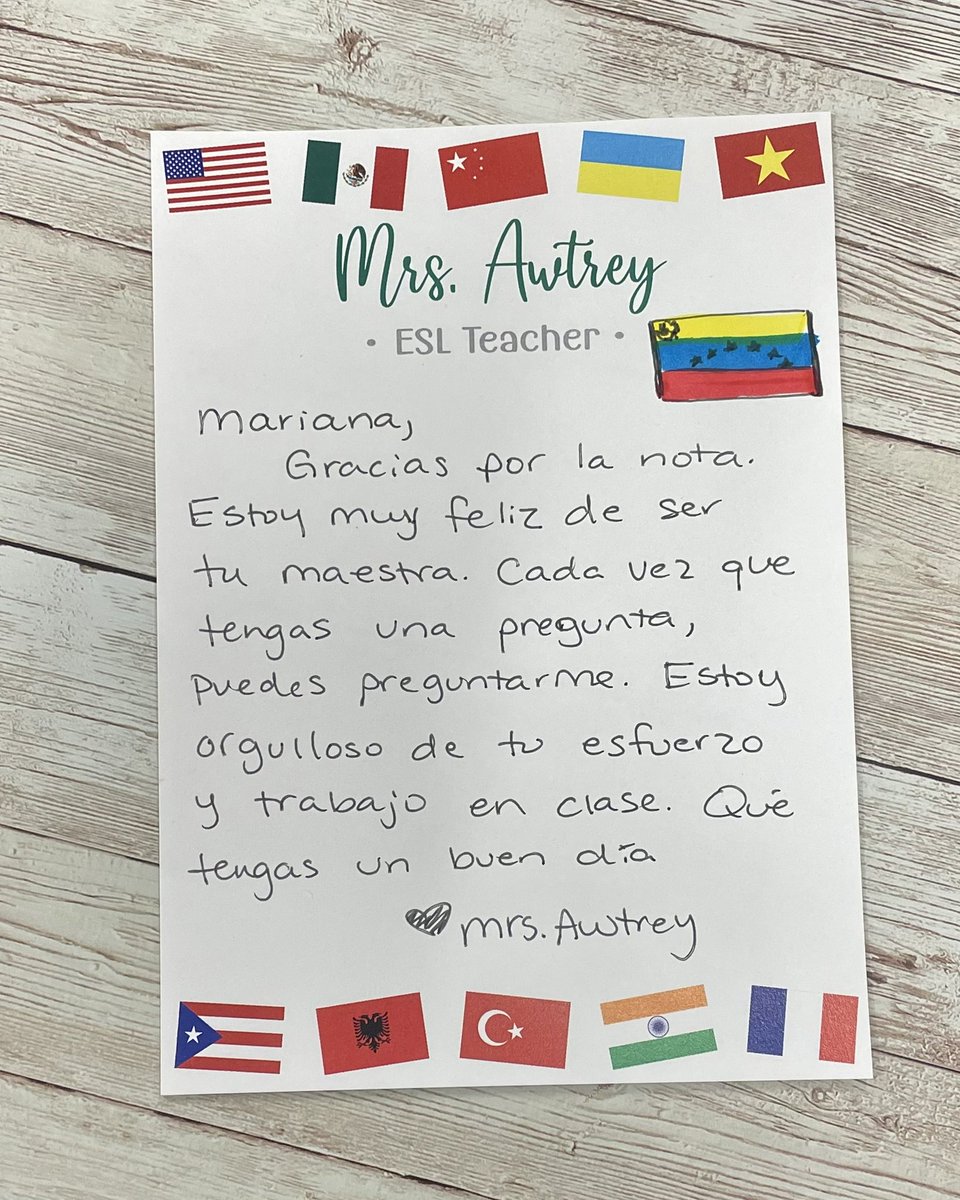 Mrs. Awtrey
• ESL Teacher •
Mariana,
Gracias por la nota.
Estoy muy feliz de ser
tu maestra. Cada vez que
tengas una pregunta,
puedes preguntarme. Estoy
orgulloso de tu esfuerzo
y trabajo en clase. Qué
tengas un buen día
♥ mrs. Awtrey